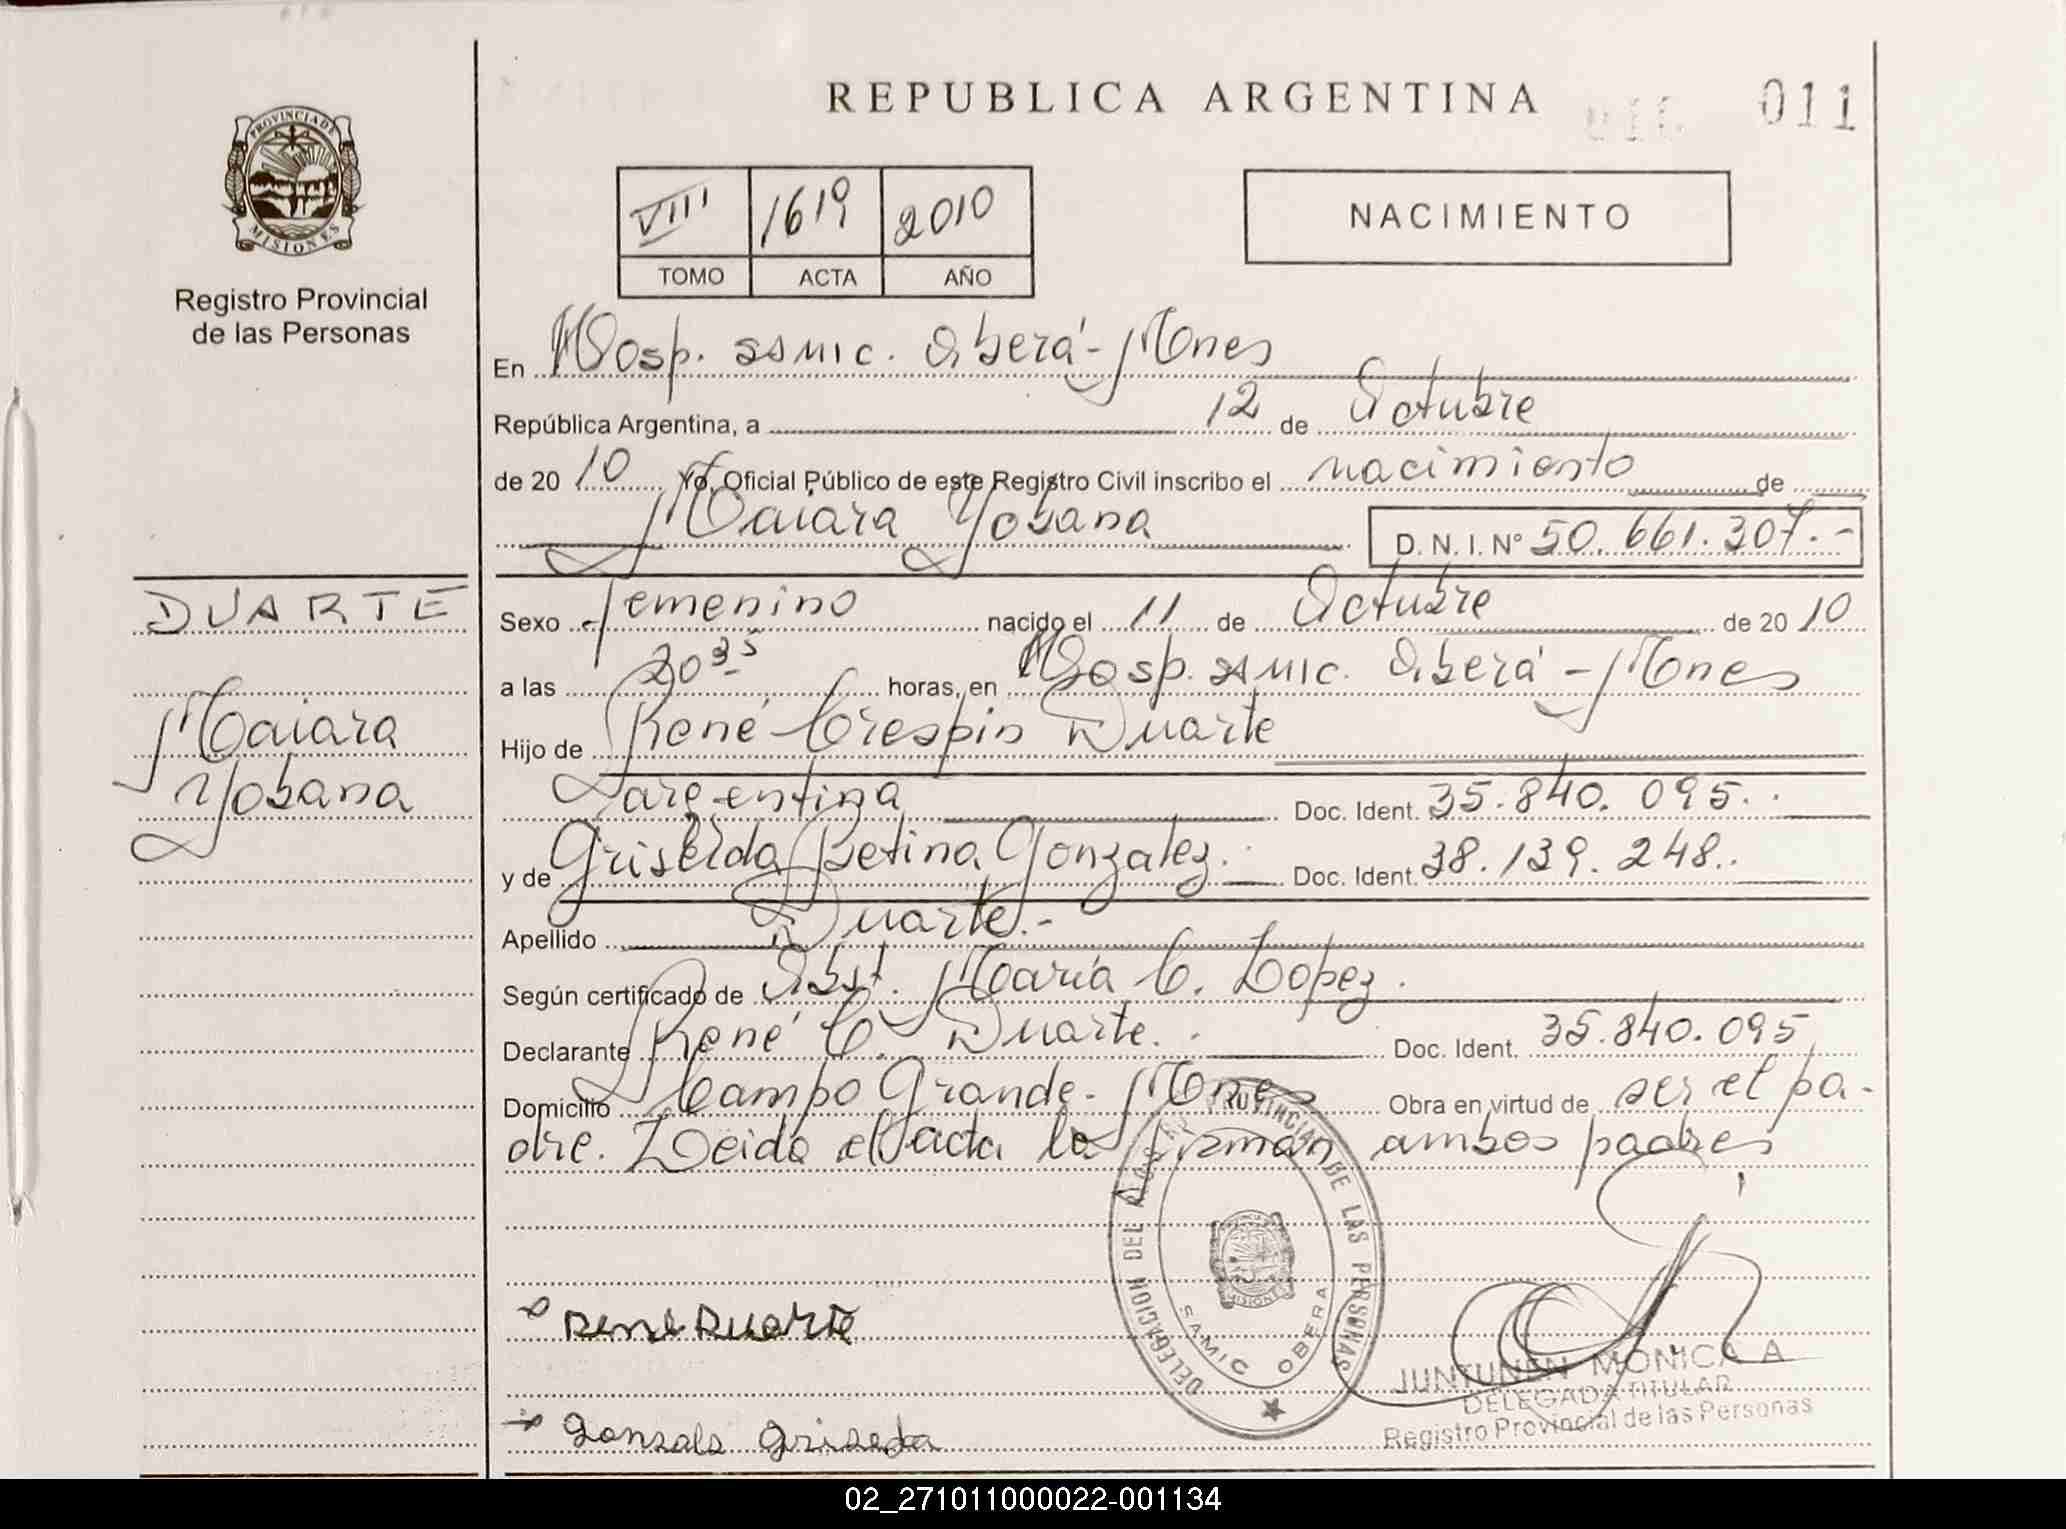 REPUBLICA ARGENTINA
011
PROVINCIA DE
MISIONES
Registro Provincial
de las Personas
VIII 1619 2010
TOMO ACTA AÑO
NACIMIENTO
En Hosp. SAMIC. Oberá - Mnes
República Argentina, a 12 de Octubre
de 20 10 Yo, Oficial Público de este Registro Civil inscribo el nacimiento de
Maiara Yohana D. N. I. Nº 50.661.307.-
DUARTE
Maiara
Yohana
Sexo femenino nacido el 11 de Octubre de 20 10
a las 20 35 horas, en Hosp. SAMIC. Oberá - Mnes
Hijo de René Crespin Duarte
argentina Doc. Ident. 35.840.095..
y de Griselda Betina Gonzalez. Doc. Ident. 38.139.248..
Apellido Duarte.-
Según certificado de Obst. María C. Lopez.
Declarante René C. Duarte. Doc. Ident. 35.840.095
Domicilio Campo Grande - Mnes Obra en virtud de ser el pa-
dre. Leida el acta la firman ambos padres
DELEGACION DEL REGISTRO PROVINCIAL DE LAS PERSONAS
SAMIC OBERA
MISIONES
René Duarte
JUNTUNEN MONICA A
DELEGADA TITULAR
Registro Provincial de las Personas
Gonsals Griselda
02_271011000022-001134